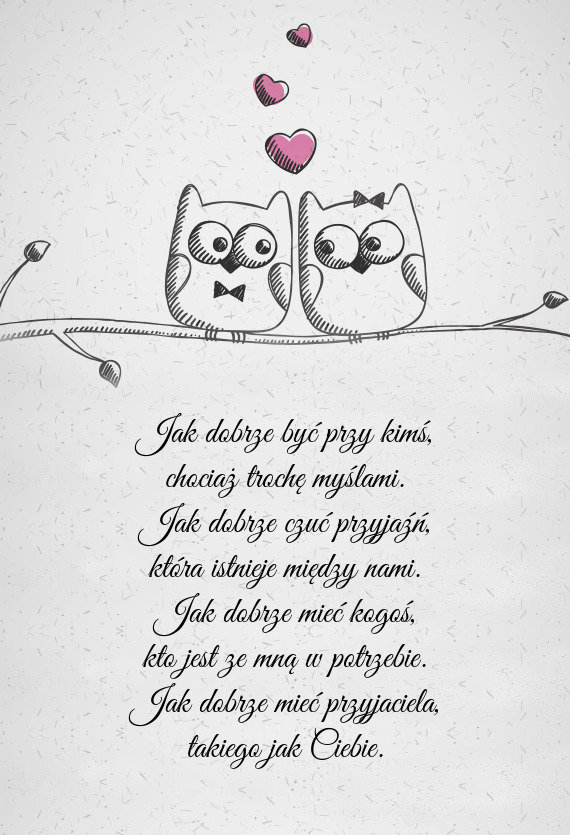 Jak dobrze być przy kimś,
chociaż trochę myślami.
Jak dobrze czuć przyjaźń,
która istnieje między nami.
Jak dobrze mieć kogoś,
kto jest ze mną w potrzebie.
Jak dobrze mieć przyjaciela,
takiego jak Ciebie.